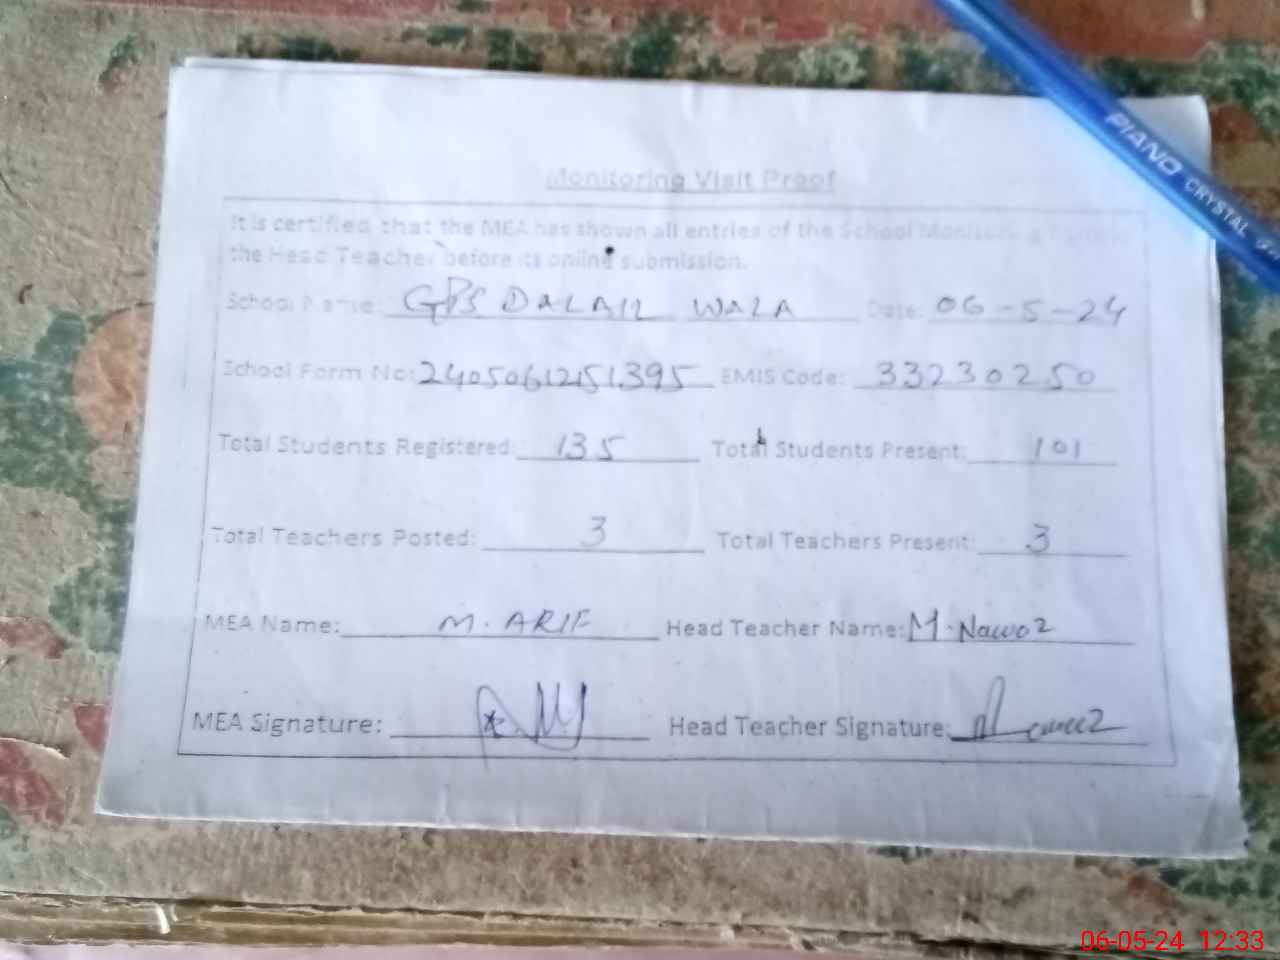 Monitoring Visit Proof
It is certified that the MEA has shown all entries of the School Monitoring
the Head Teacher before its online submission.
School Name: GPS DALAIR WALA Date: 06-5-24
School Form No: 24050612151395 EMIS Code: 33230250
Total Students Registered: 135 Total Students Present: 101
Total Teachers Posted: 3 Total Teachers Present: 3
MEA Name: M. ARIF Head Teacher Name: M. Nawaz
MEA Signature: Head Teacher Signature:
PIANO CRYSTAL
06-05-24 12:33